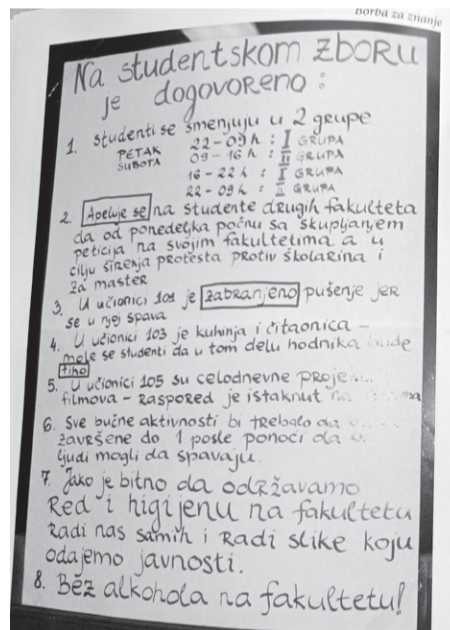 Borba za znanje
Na studentskom zboru
je dogovoreno:
1. Studenti se smenjuju u 2 grupe
PETAK 22-09h: I GRUPA
SUBOTA 09-16h: II GRUPA
16-22h: I GRUPA
22-09h: II GRUPA
2. Apeluje se na studente drugih fakulteta
da od ponedeljka počnu sa skupljanjem
peticija na svojim fakultetima a u
cilju širenja protesta protiv školarina i
za master
3. U učionici 101 je zabranjeno pušenje jer
se u njoj spava
4. U učionici 103 je kuhinja i čitaonica -
mole se studenti da u tom delu hodnika bude
tiho
5. U učionici 105 su celodnevne
filmova - raspored je istaknut
6. Sve bučne aktivnosti bi trebalo da
završene do 1 posle ponoći da
ljudi mogli da spavaju.
7. Jako je bitno da održavamo
red i higijenu na fakultetu
radi nas samih i radi slike koju
odajemo javnosti.
8. Bez alkohola na fakultetu!